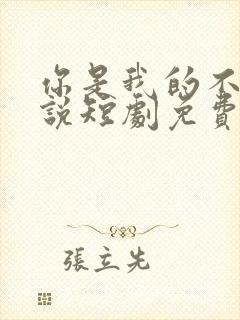 你是我的不
說短劇免費
張立先